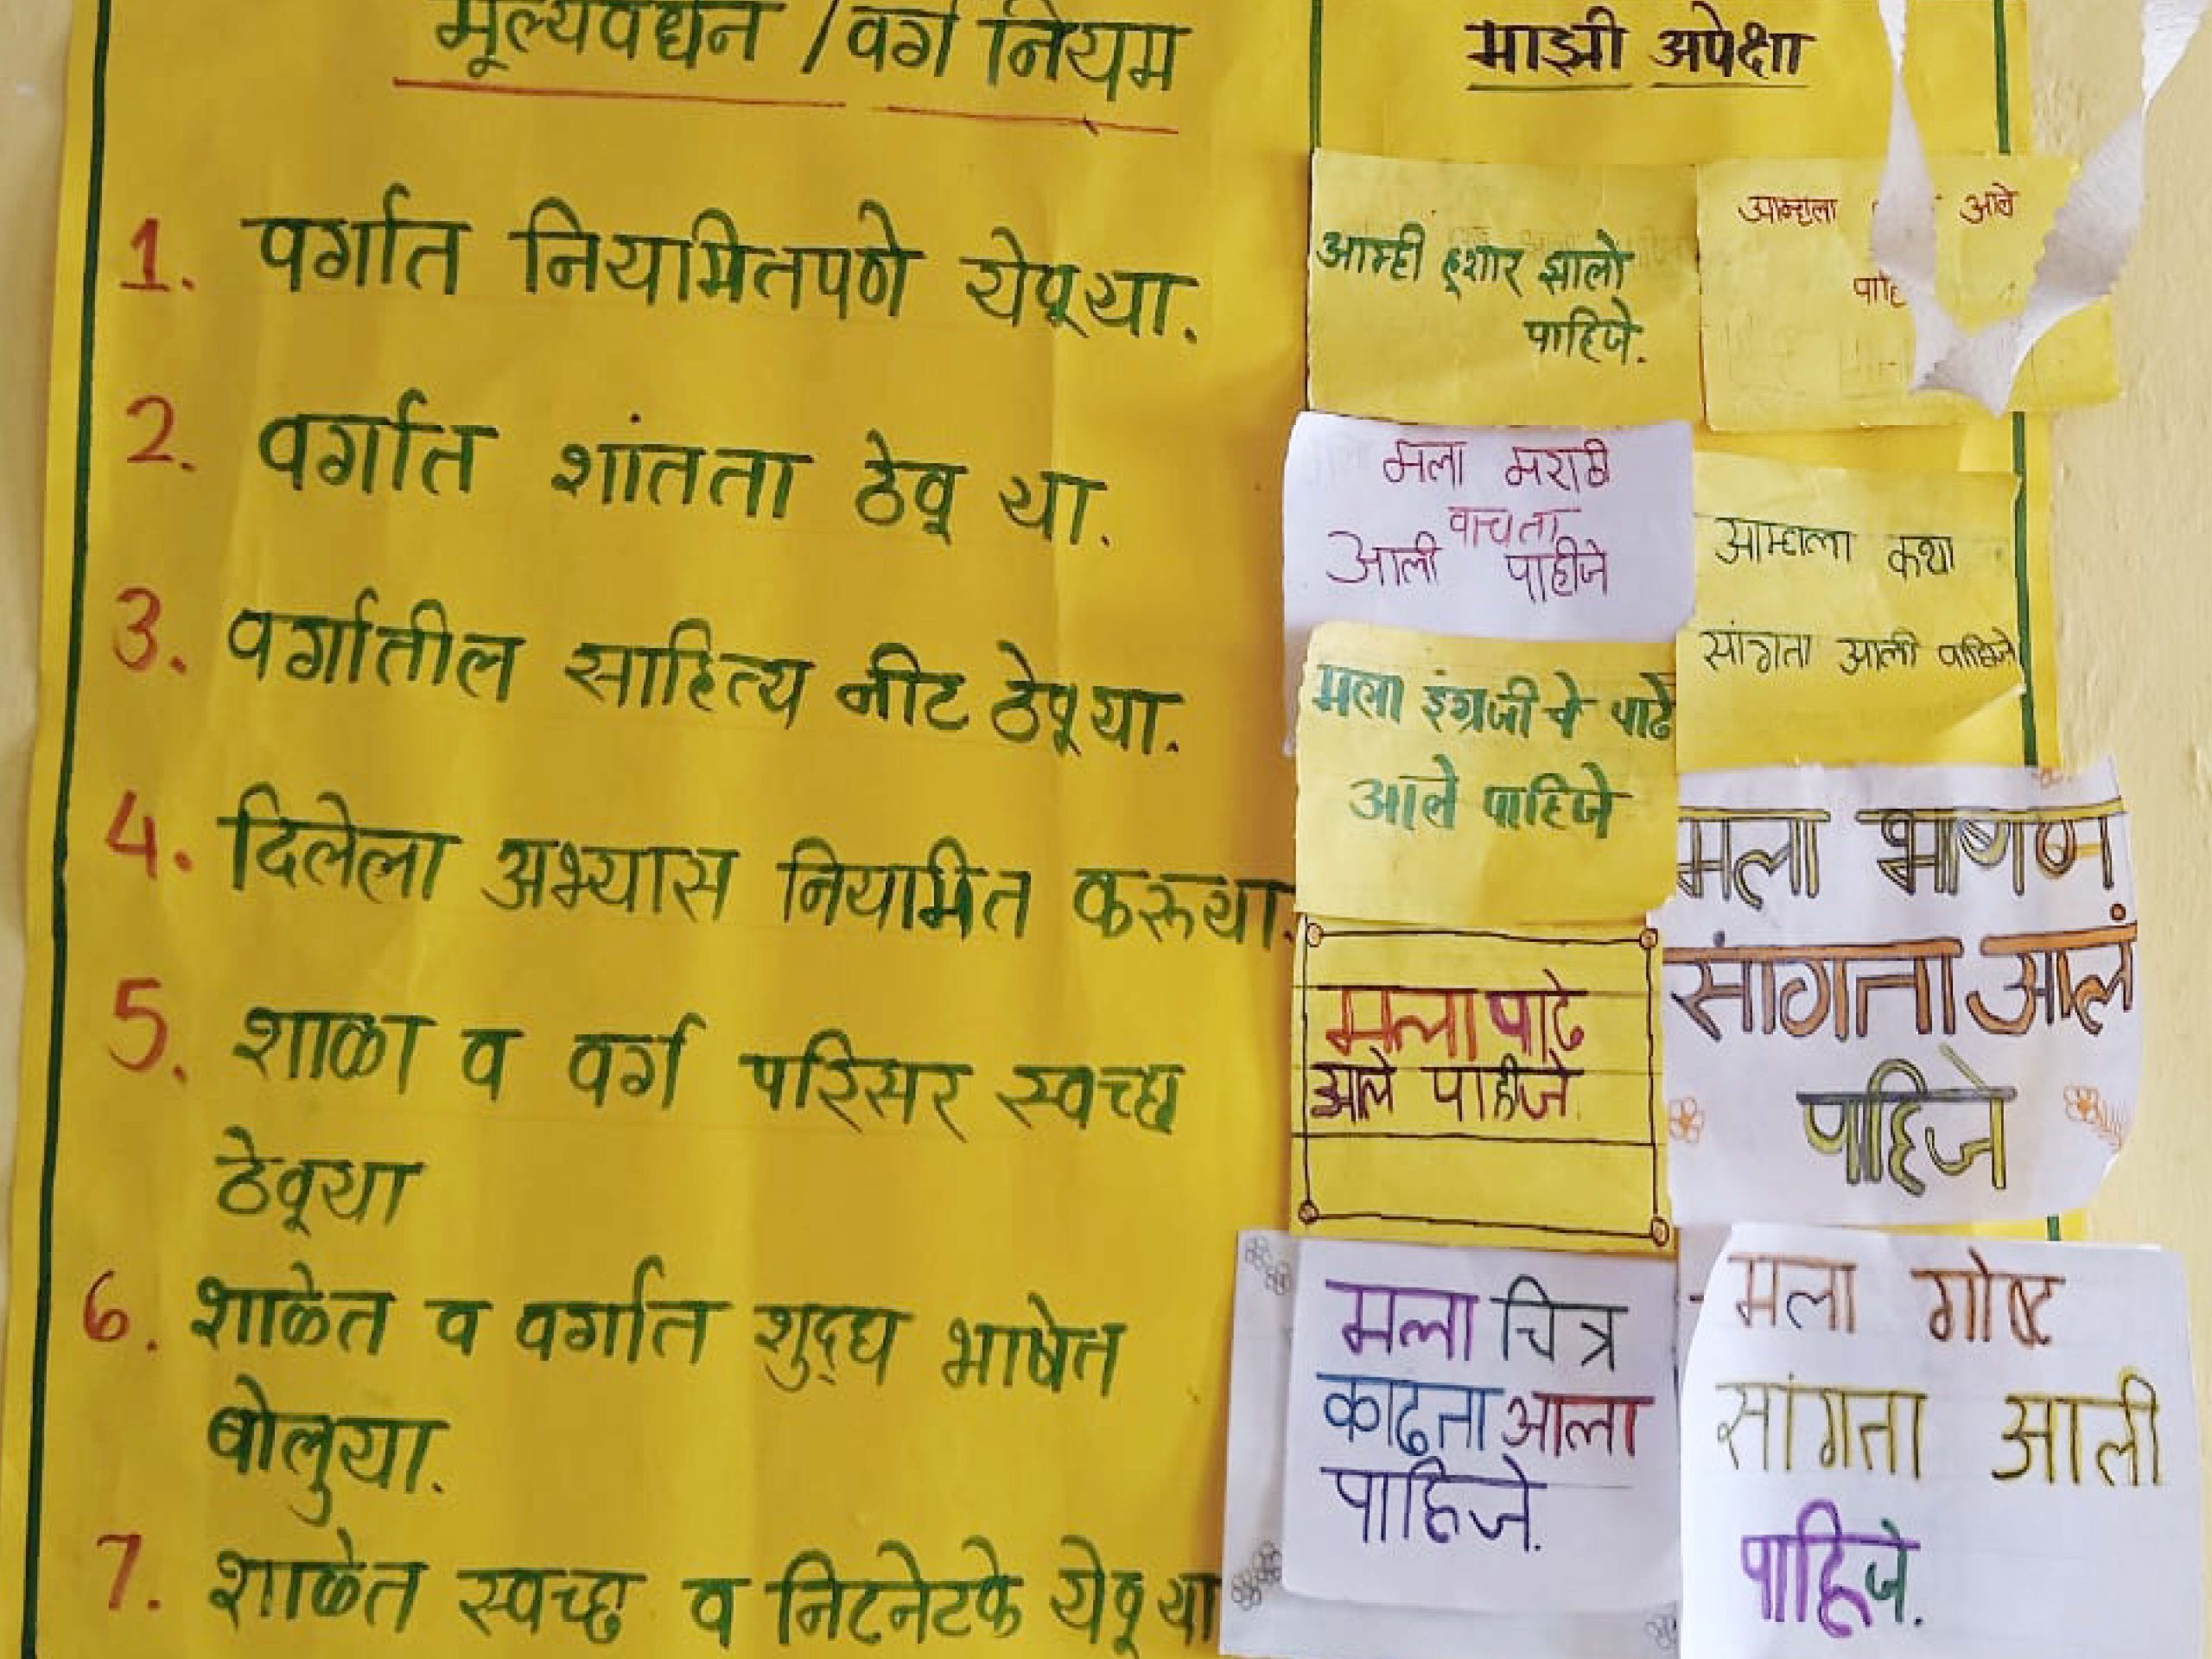 मूल्यवर्धन / वर्ग नियम
1. वर्गात नियमितपणे येवूया.
2. वर्गात शांतता ठेवू या.
3. वर्गातील साहित्य नीट ठेवूया.
4. दिलेला अभ्यास नियमित करूया.
5. शाळा व वर्ग परिसर स्वच्छ
ठेवूया
6. शाळेत व वर्गात शुद्ध भाषेत
बोलुया.
7. शाळेत स्वच्छ व निटनेटके येवू या
माझी अपेक्षा
आम्ही हूशार झालो
पाहिजे.
आम्हाला
मला मराठी
वाचता
आली पाहीजे
आम्हाला कथा
सांगता आली पाहिजे
मला इंग्रजी चे पाढे
आले पाहिजे
मला भाषण
सांगता आलं
पाहिजे
मला पाढे
आले पाहीजे.
मला चित्र
काढता आला
पाहिजे.
मला गोष्ट
सांगता आली
पाहिजे.